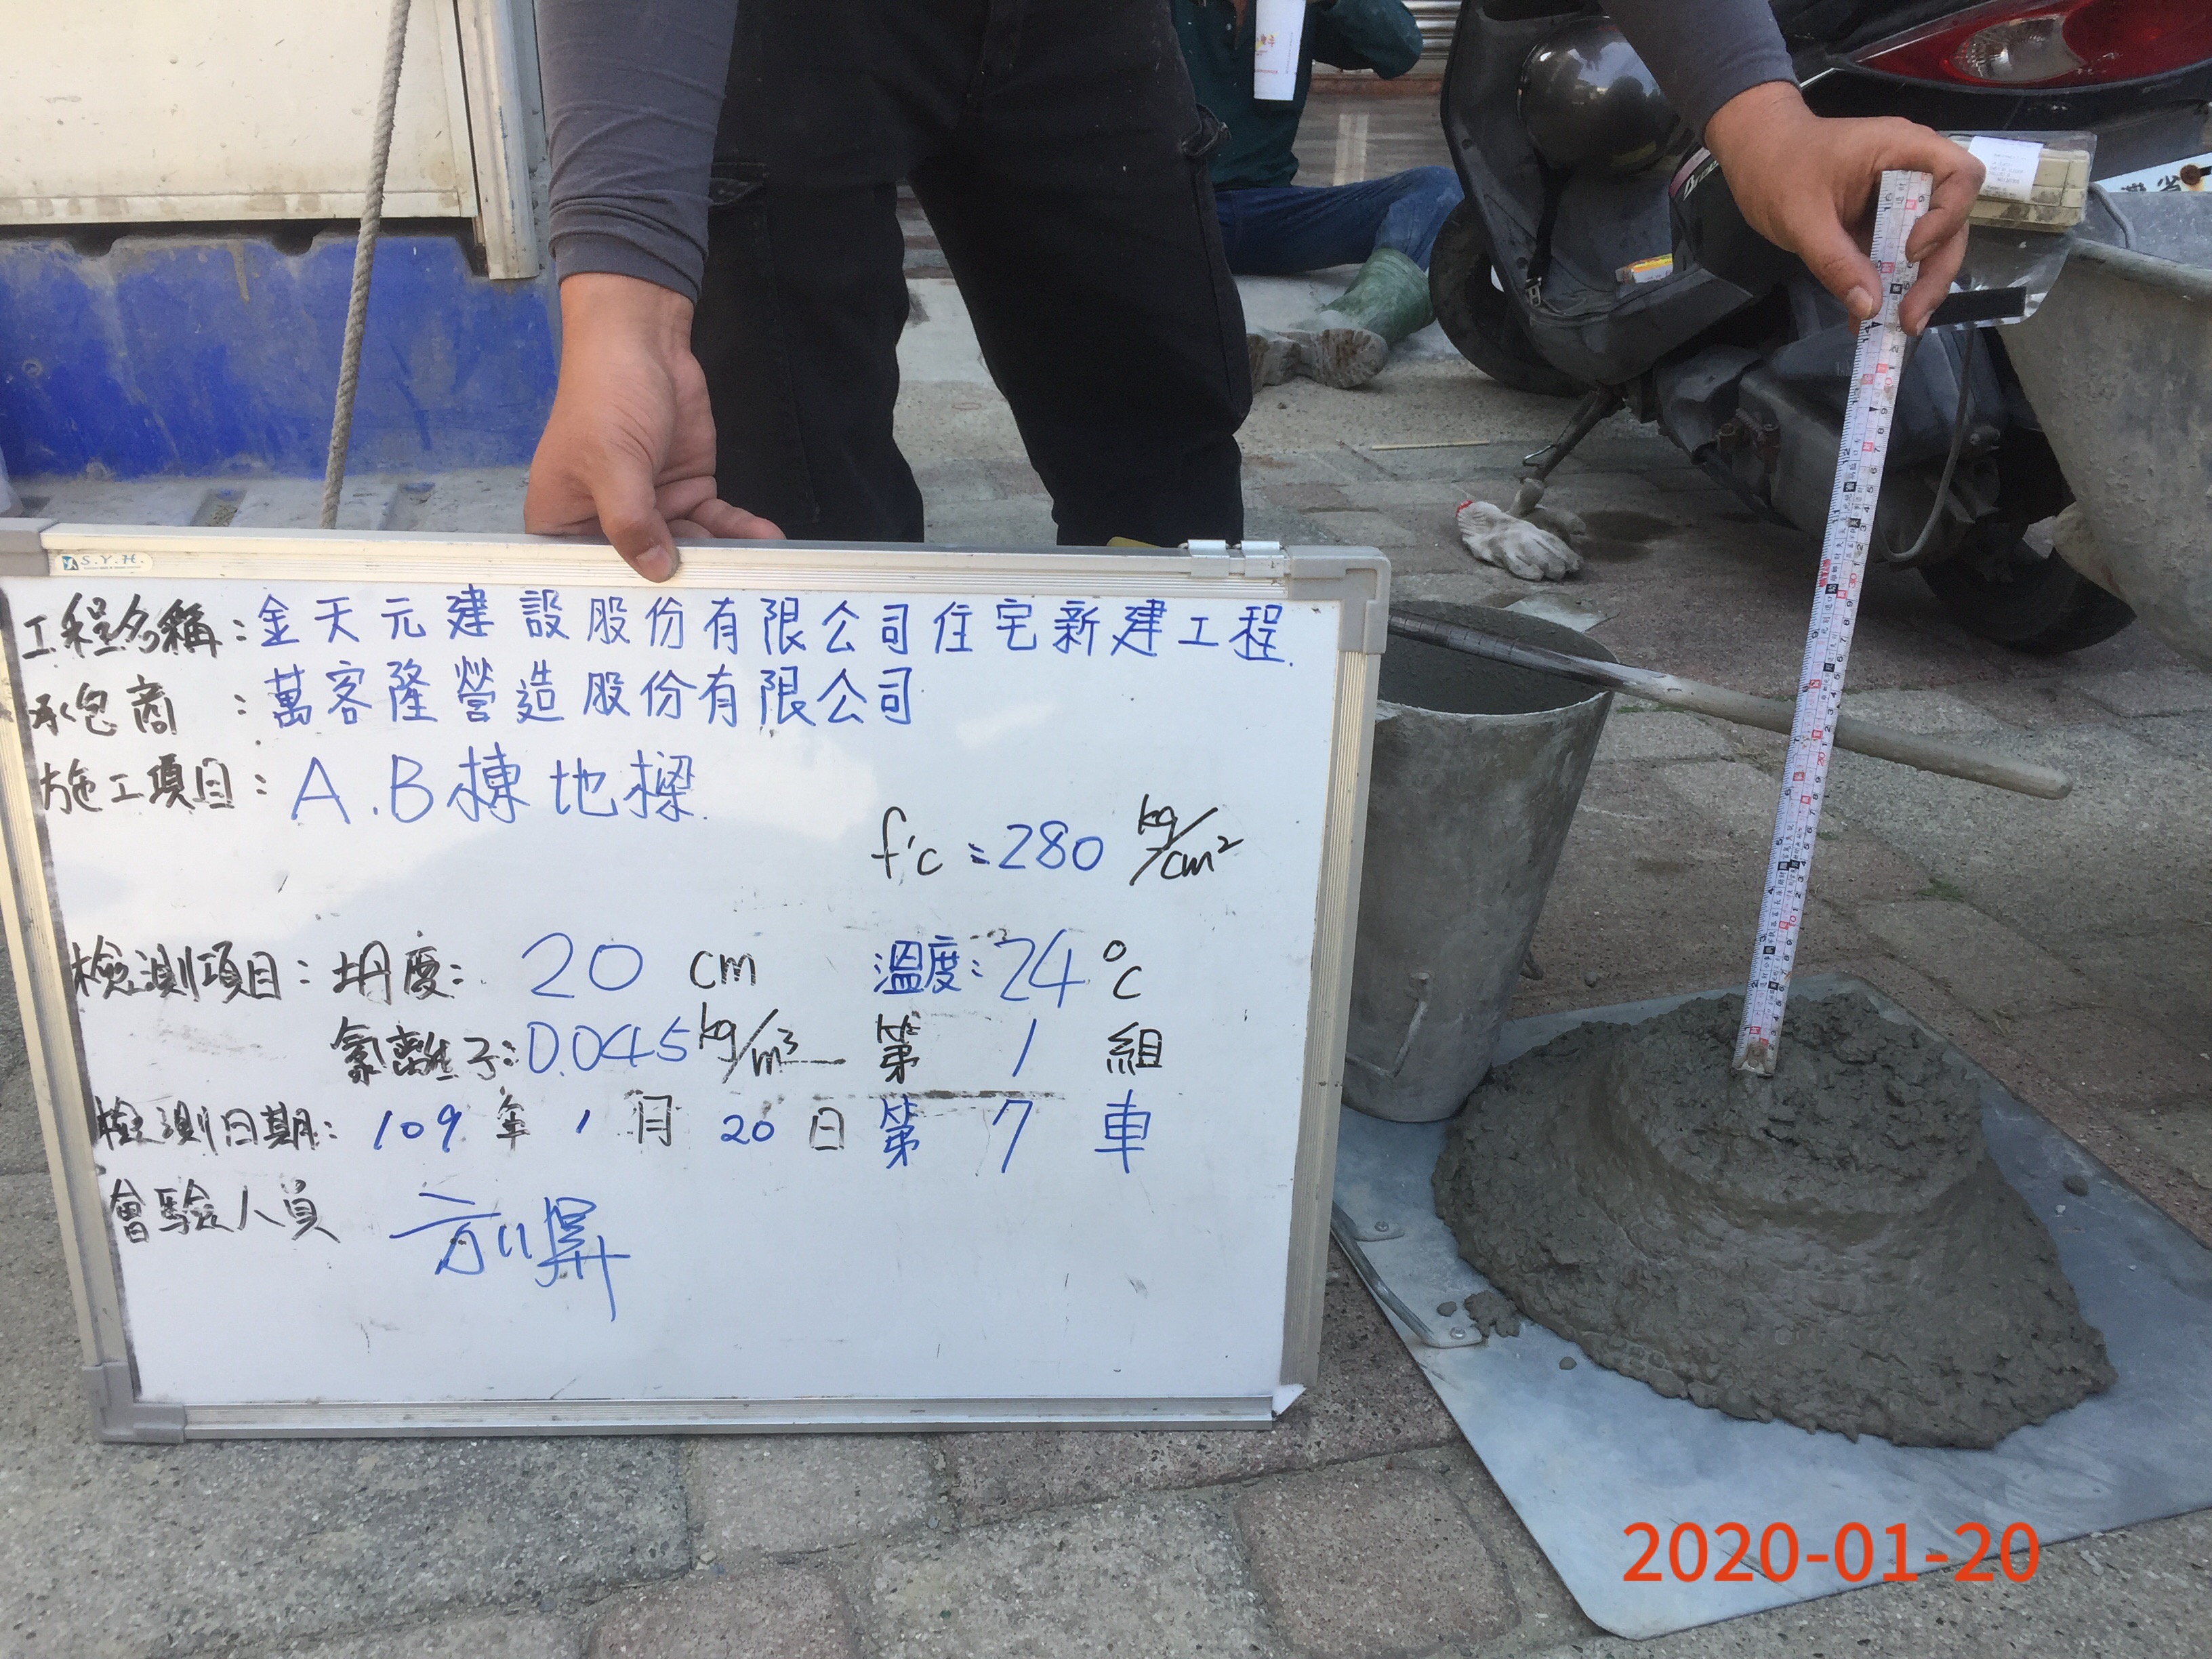 S.Y.H.
工程名稱：金天元建設股份有限公司住宅新建工程.
承包商：萬客隆營造股份有限公司
施工項目：A.B棟地樑.
f'c = 280 kg/cm²
檢測項目：坍度：20 cm 溫度：24 °C
氯離子：0.045 kg/m³ 第 1 組
檢測日期：109 年 1 月 20 日 第 7 車
會驗人員
2020-01-20